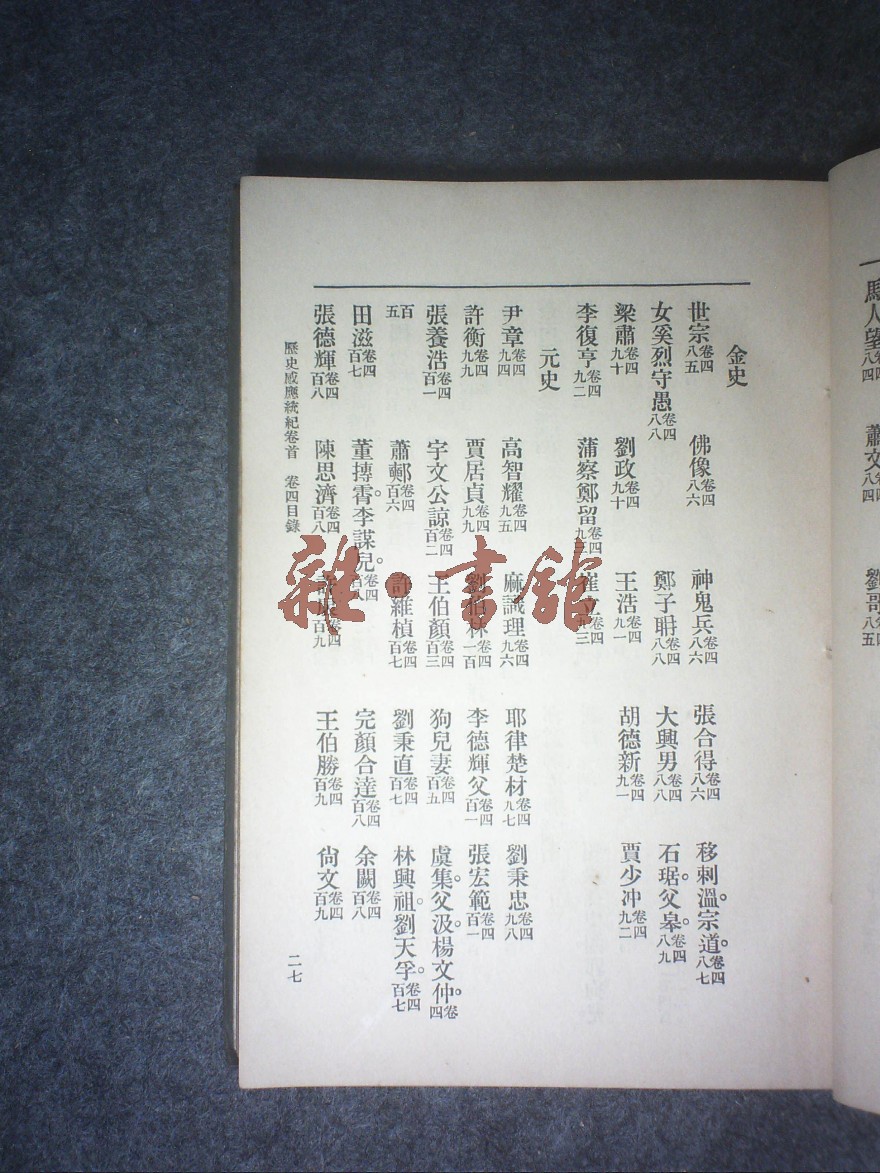 金史
世宗卷四八五 佛像卷四八六 神鬼兵卷四八六 張合得卷四八六 移剌溫。宗道。卷四八七
女奚烈守愚卷四八八 鄭子聃卷四八八 大興男卷四八八 石琚。父皋。卷四八九
梁肅卷四九十 劉政卷四九十 王浩卷四九一 胡德新卷四九一 賈少冲卷四九二
李復亨卷四九二 蒲察鄭留卷四九三 卷四九三
元史
尹章卷四九四 高智耀卷四九五 麻誠理卷四九六 耶律楚材卷四九七 劉秉忠卷四九八
許衡卷四九九 賈居貞卷四九九 劉伯林卷四一百 李德輝父卷四百一 張宏範卷四百一
張養浩卷四百一 宇文公諒卷四百二 王伯顏卷四百三 狗兒妻卷四百五 虞集。父汲。楊文仲。卷四
百五 蕭㪺卷四百六 許維楨卷四百七 劉秉直卷四百七 林興祖。劉天孚。卷四百七
田滋卷四百七 董摶霄。李謀兒。卷四百八 完顏合達卷四百八 余闕卷四百八
張德輝卷四百八 陳思濟卷四百八 卷四百九 王伯勝卷四百九 尙文卷四百九
歷史感應統紀卷首 卷四目錄 二七
馬人望卷四八四 蕭文卷四八四 劉哥卷四八五
雜·書館